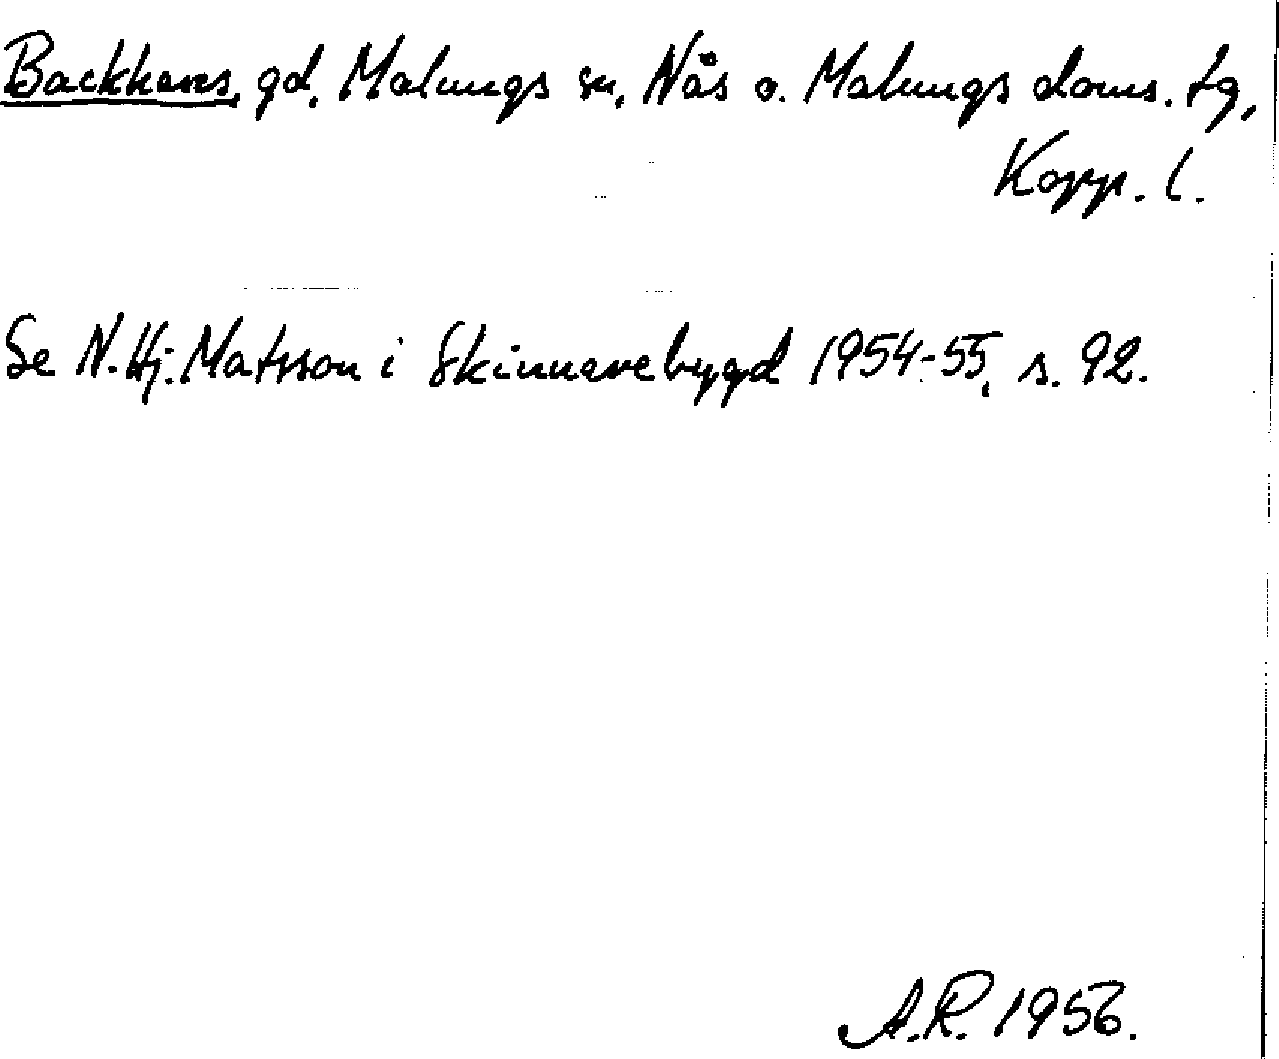 Backhans, gd, Malungs sn, Nås o. Malungs doms. tg,
Kopp. l.
Se N. Hj. Matsson i Skinnarebygd 1954-55, s. 92.
A.R. 1956.